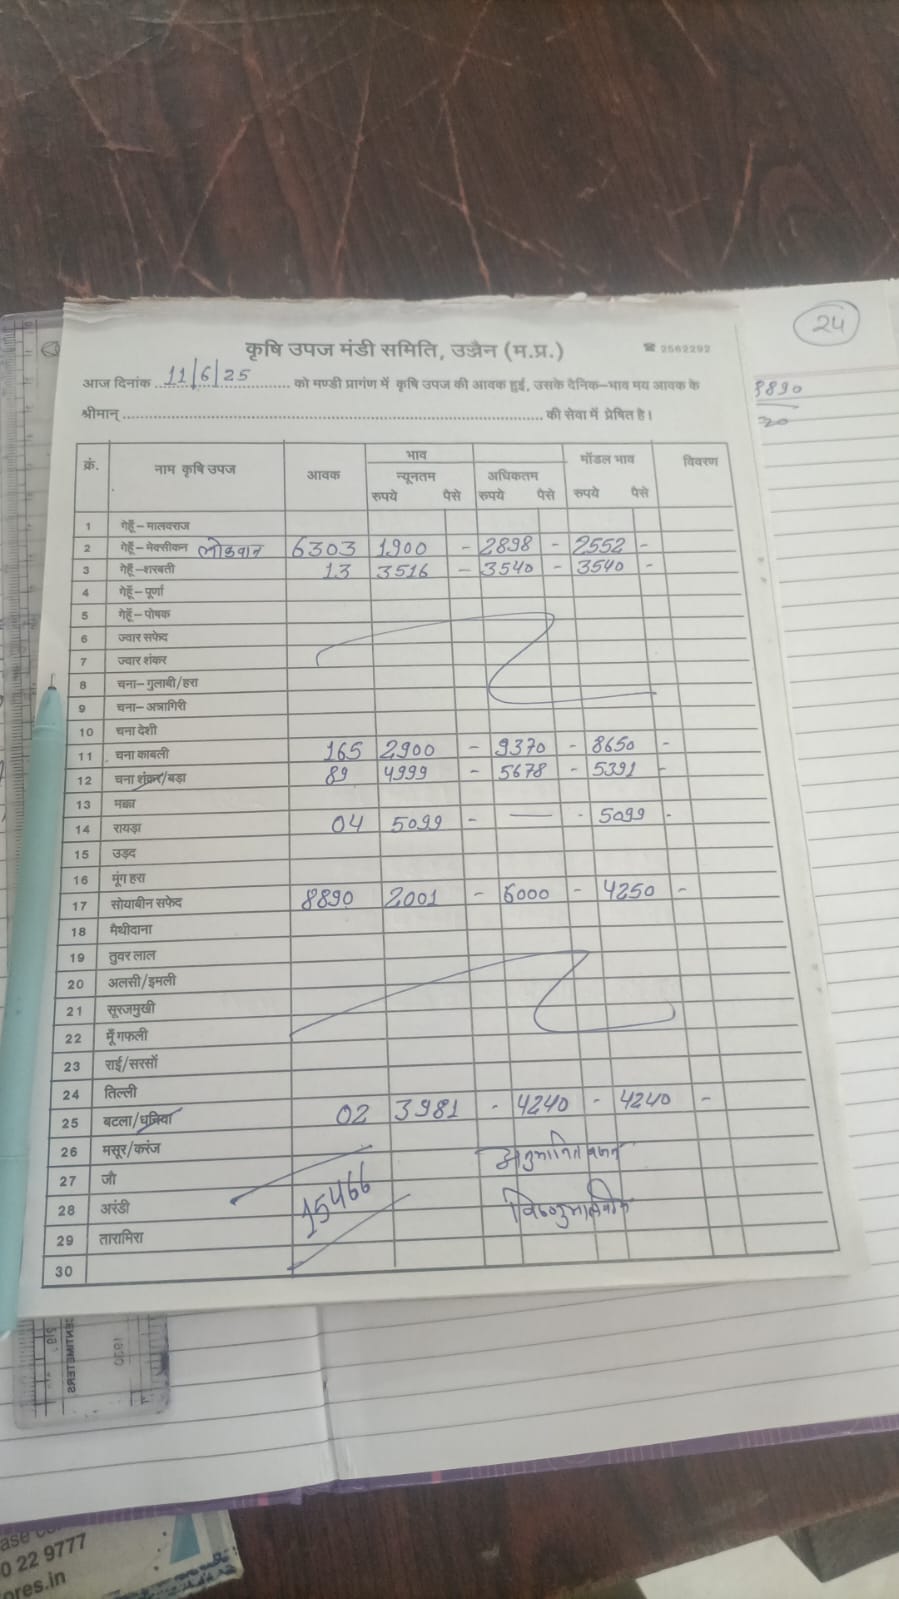 24
कृषि उपज मंडी समिति, उज्जैन (म.प्र.) ☎ 2562292
आज दिनांक 11/6/25 को मण्डी प्रागंण में कृषि उपज की आवक हुई, उसके दैनिक–भाव मय आवक के
श्रीमान् की सेवा में प्रेषित है।
8890
20
क्रं. नाम कृषि उपज आवक भाव मॉडल भाव विवरण
न्यूनतम अधिकतम
रुपये पैसे रुपये पैसे रुपये पैसे
1 गेहूँ–मालवराज
2 गेहूँ–मेक्सीकन लोकवान 6303 1900 - 2898 - 2552 -
3 गेहूँ–शरबती 13 3516 - 3540 - 3540 -
4 गेहूँ–पूर्णा
5 गेहूँ–पोषक
6 ज्वार सफेद
7 ज्वार शंकर
8 चना–गुलाबी/हरा
9 चना–अन्नागिरी
10 चना देशी
11 चना काबली 165 2900 - 9370 - 8650 -
12 चना शंकर/बड़ा 89 4999 - 5678 - 5391 -
13 मक्का
14 रायड़ा 04 5099 - — - 5099 -
15 उड़द
16 मूंग हरा
17 सोयाबीन सफेद 8890 2001 - 5000 - 4250 -
18 मैथीदाना
19 तुवर लाल
20 अलसी/इमली
21 सूरजमुखी
22 मूँगफली
23 राई/सरसों
24 तिल्ली
25 बटला/धनिया 02 3981 - 4240 - 4240 -
26 मसूर/करंज
अनुमानित वजन
27 जौ
28 अरंडी 15466
29 तारामिरा
30
CENTIMETERS
0 22 9777
ores.in